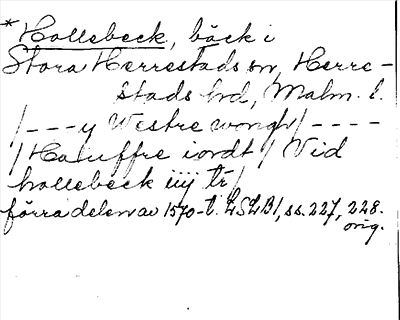 *Hollebeck, bäck i
Stora Herrestads sn, Herre-
stads hd, Malm. l.
/---y Westre wongh/----
/Haluffre iordt/ Vid
hollebeck iiij tr/
förra delen av 1570-t. LSLB1, ss. 227, 228.
orig.